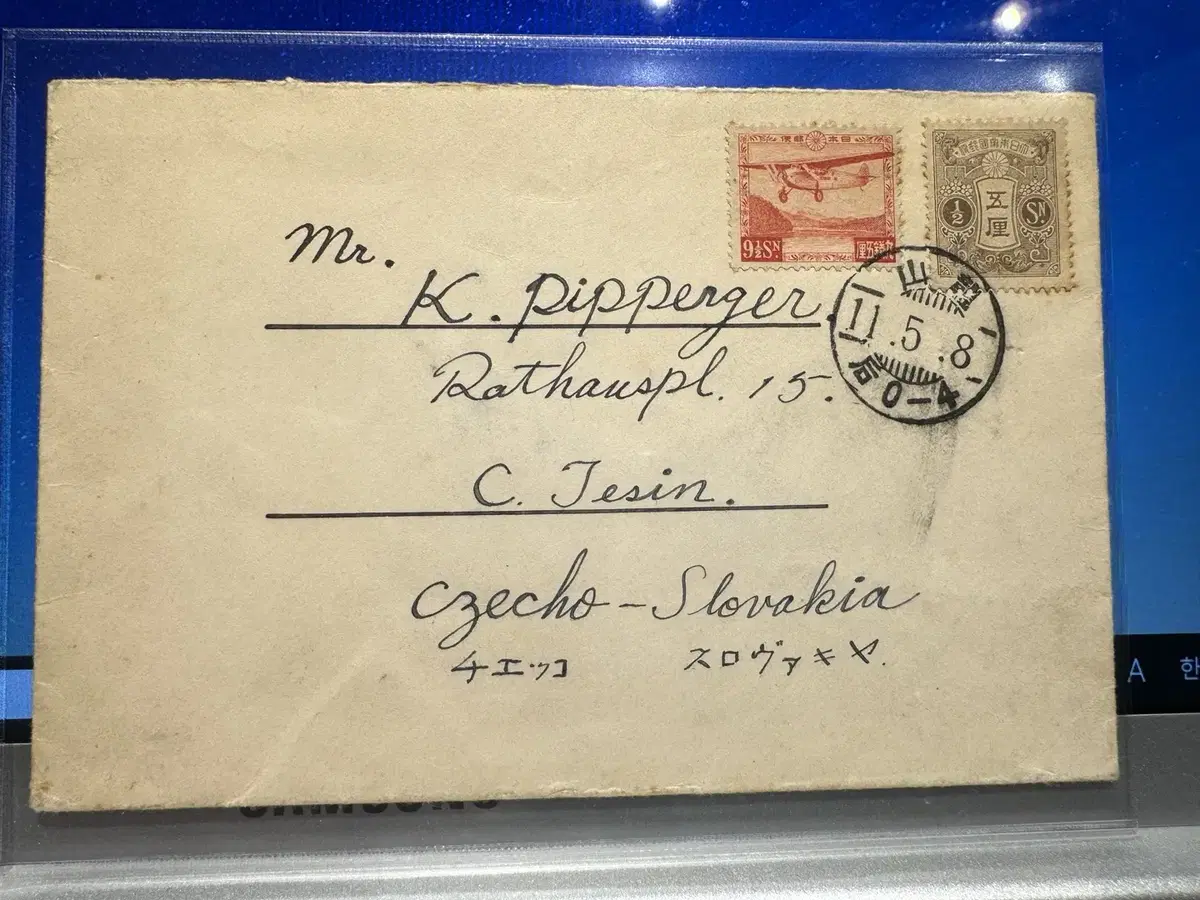 日本郵便
9½SN
九銭五厘
大日本帝國郵便
½
五厘
SN
山
11.5.8
后0-4
Mr.
K. Pipperger.
Rathauspl. 15.
C. Tesin.
Czecho-Slovakia
チエッコ スロヴァキヤ.
A 한